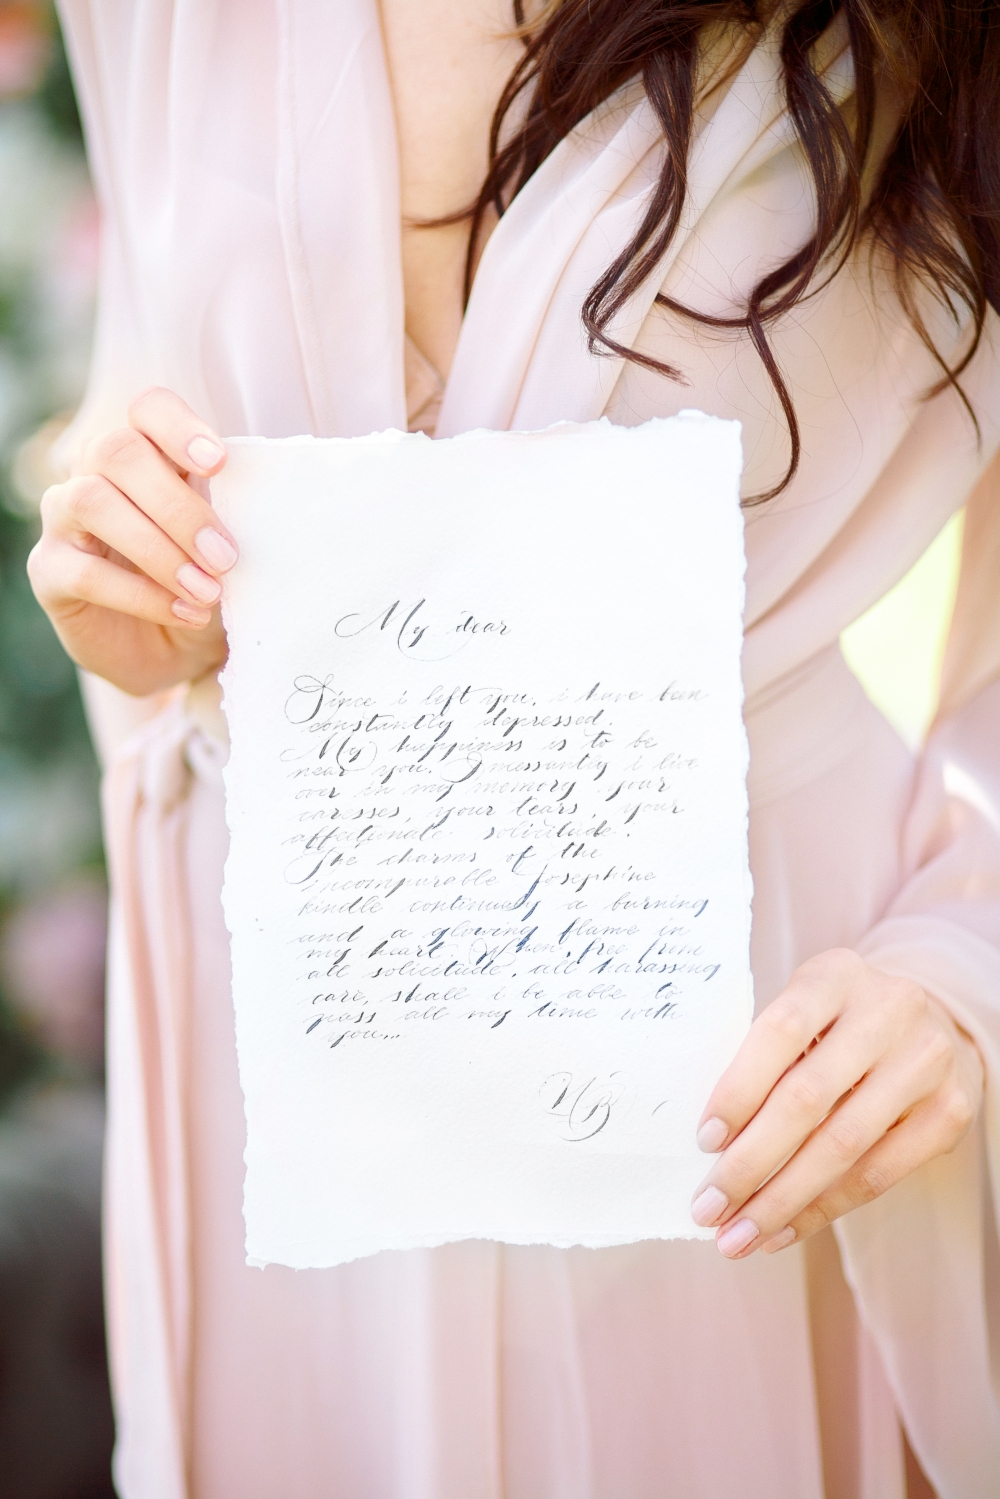 My dear
Since i left you, i have been
constantly depressed.
My happiness is to be
near you. Incessantly i live
over in my memory your
caresses, your tears, your
affectionate solicitude.
The charms of the
incomparable Josephine
kindle continuely a burning
and a glowing flame in
my heart. When, free from
all solicitude, all harassing
care, shall i be able to
pass all my time with
you...
NB